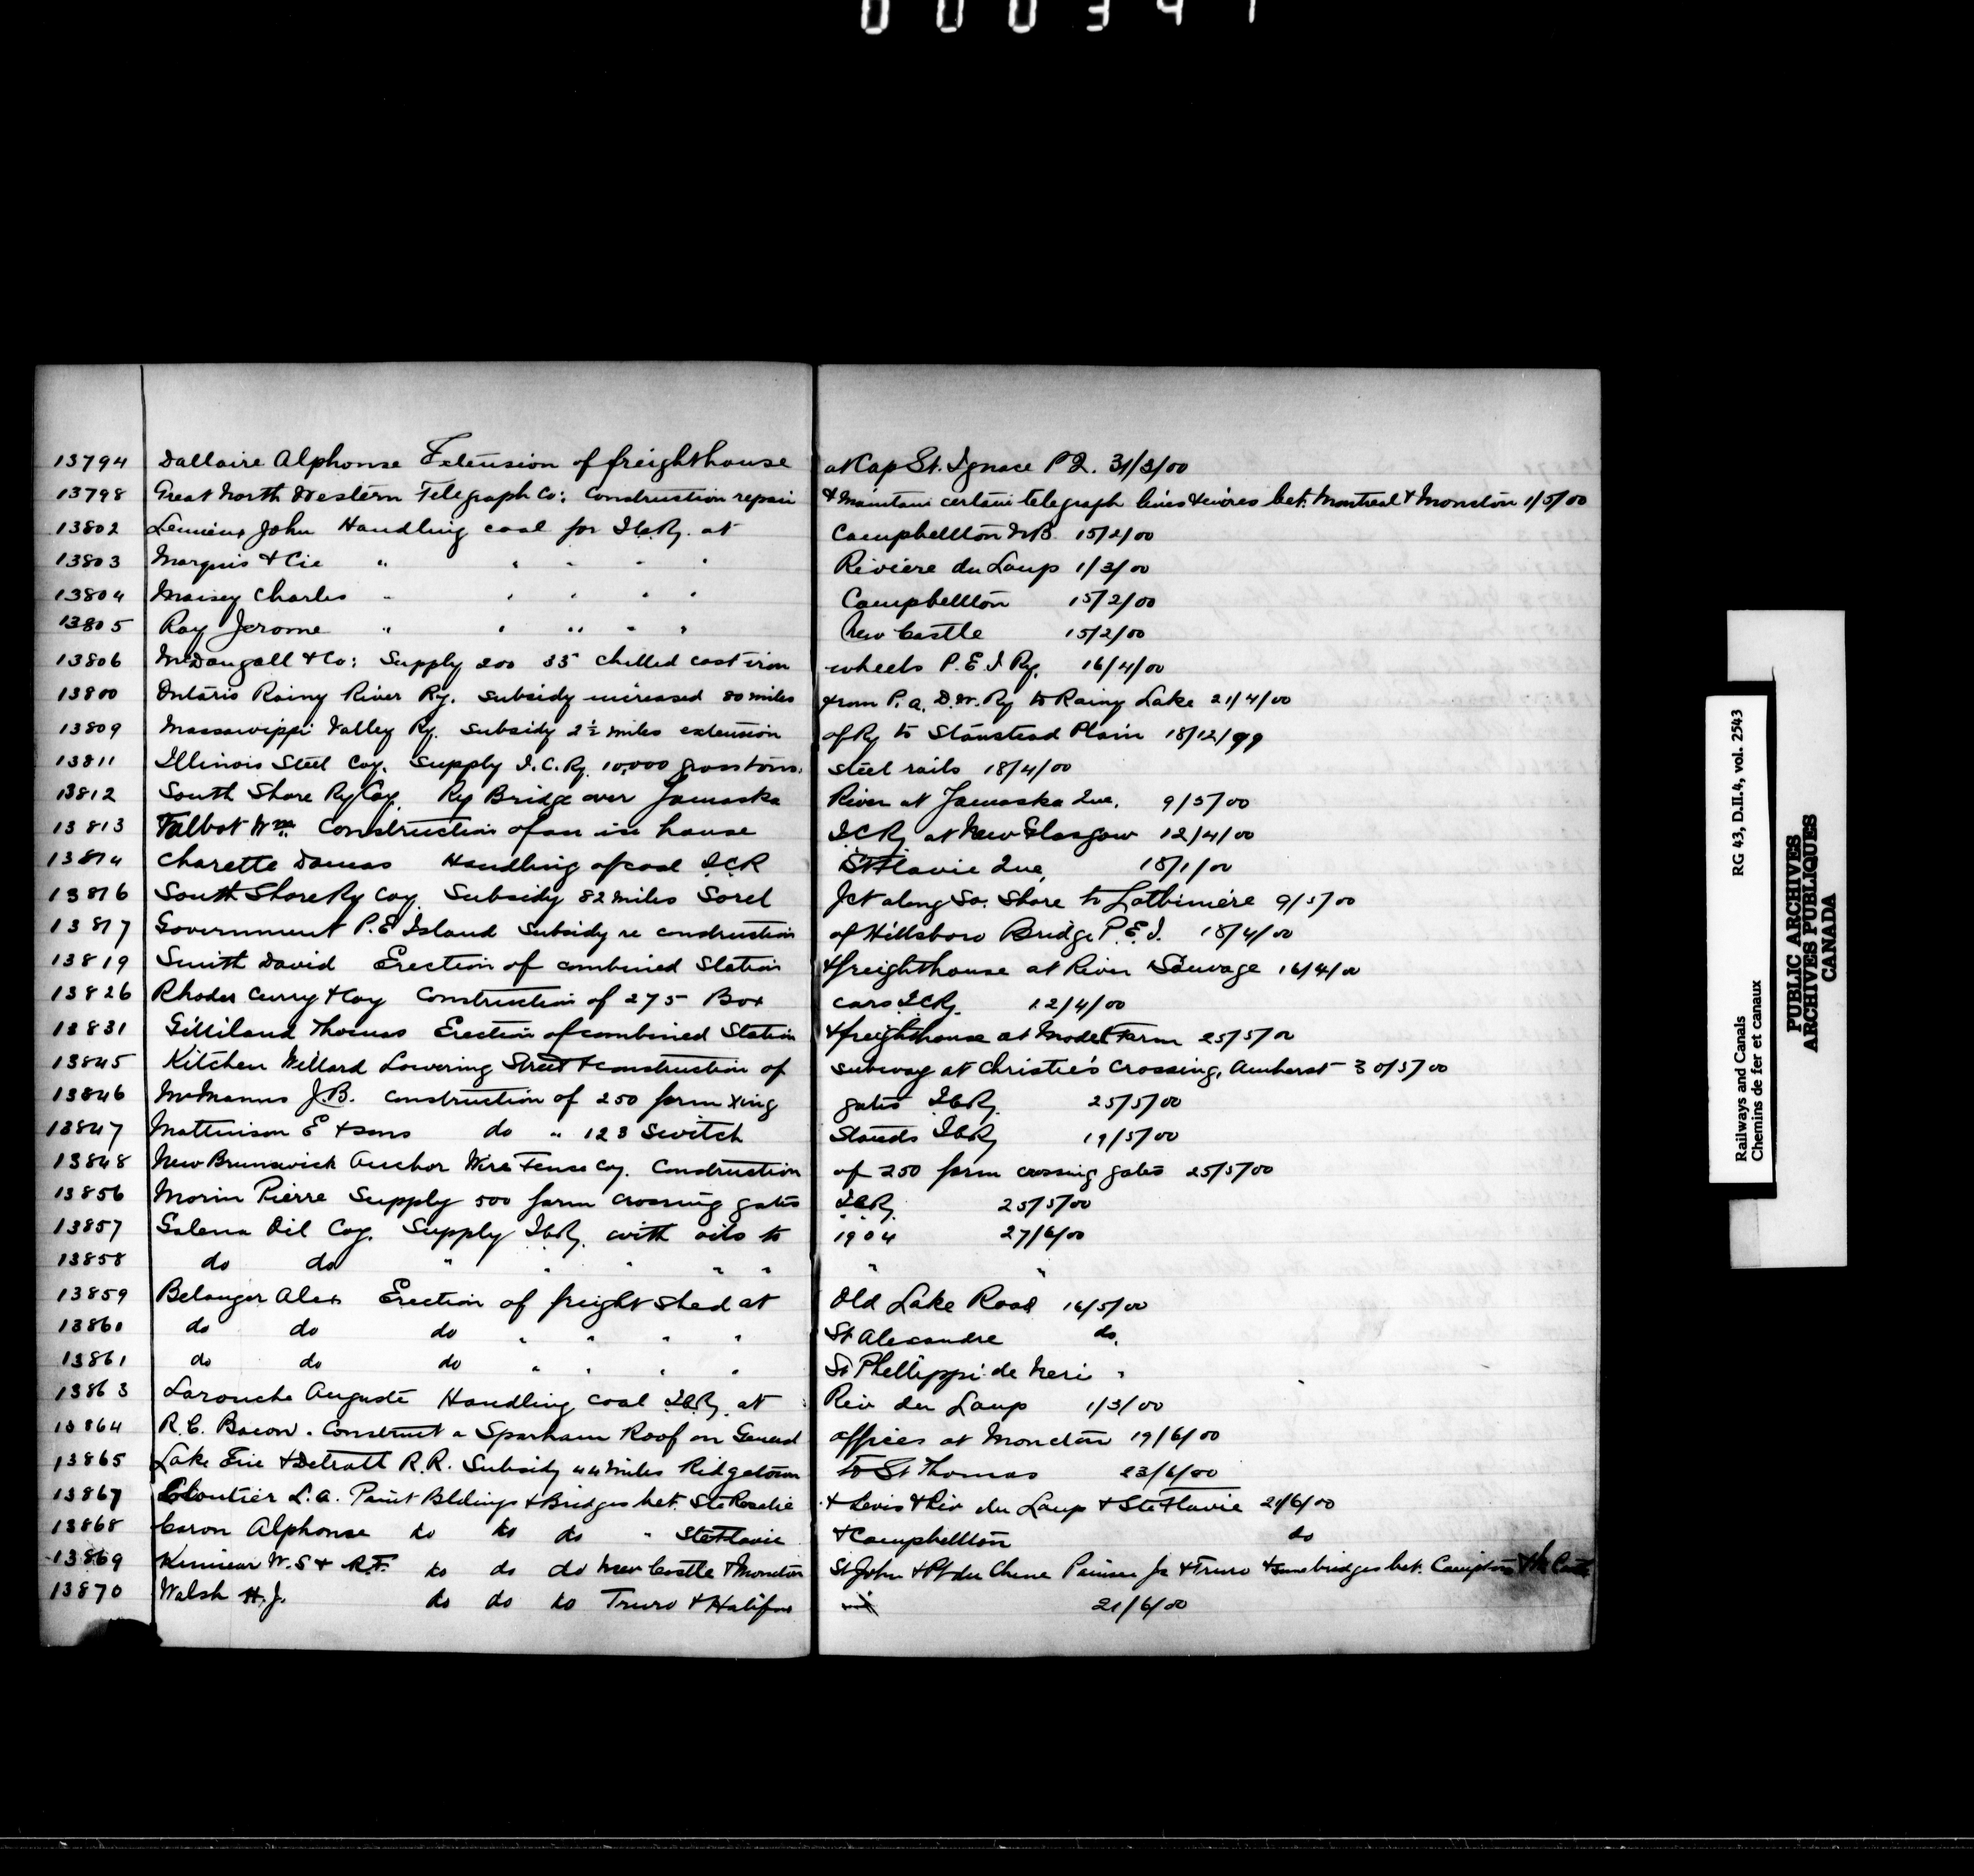 000347
13794 Dallaire Alphonse Extension of freighthouse at Cap St. Ignace P2. 31/3/00
13798 Great North Western Telegraph Co: Construction repair & Maintain certain telegraph lines & wires bet. Montreal & Moncton 1/5/00
13802 Lemieux John Handling coal for I.C.Ry. at Campbellton N.B. 15/2/00
13803 Marquis & Cie " " " " " Riviere du Loup 1/3/00
13804 Maisey Charles " " " " " Campbellton 15/2/00
13805 Roy Jerome " " " " " New Castle 15/2/00
13806 McDougall & Co: Supply 200 33" chilled cast iron wheels P.E.I Ry. 16/4/00
13800 Ontario Rainy River Ry. Subsidy increased 80 miles from P.A.D.W. Ry to Rainy Lake 21/4/00
13809 Massawippi Valley Ry. Subsidy 2½ miles extension of Ry to Stanstead Plain 18/12/99
13811 Illinois Steel Coy. Supply I.C.Ry. 10,000 gross tons. Steel rails 18/4/00
13812 South Shore Ry Coy. Ry Bridge over Yamaska River at Yamaska Que. 9/5/00
13813 Talbot Wm. Construction of an ice house I.C.Ry at New Glasgow 12/4/00
13814 Charette Damas Handling of coal I.C.R St Flavie Que. 18/1/00
13816 South Shore Ry Coy. Subsidy 82 miles Sorel Jct along So. Shore to Lotbiniere 9/5/00
13817 Government P.E Island Subsidy re construction of Hillsboro Bridge P.E.I. 18/4/00
13819 Smith David Erection of combined Station & freighthouse at River Sauvage 16/4/00
13826 Rhodes Curry & Coy Construction of 275 Box cars I.C.Ry. 12/4/00
13831 Gilliland Thomas Erection of combined Station & freighthouse at Model Farm 25/5/00
13845 Kitchen Willard Lowering Street & construction of subway at Christie's Crossing, Amherst 30/5/00
13846 McManus J.B. Construction of 250 farm Xing gates I.C.Ry. 25/5/00
13847 Mattinson E & sons do " 123 Switch Stands I.C.Ry 19/5/00
13848 New Brunswick Anchor Wire Fence Coy. Construction of 250 farm crossing gates 25/5/00
13856 Morin Pierre Supply 500 farm crossing gates I.C.Ry. 25/5/00
13857 Galena Oil Coy. Supply I.C.Ry. with oils to 1904 27/6/00
13858 do do " " " " " " "
13859 Belanger Alex Erection of freight shed at Old Lake Road 16/5/00
13860 do do do " " " " St Alexandre do.
13861 do do do " " " " St Phellippi de Neri "
13863 Larouche Auguste Handling coal I.C.Ry. at Riv du Loup 1/3/00
13864 R.C. Bacon. Construct a Sparham Roof on General offices at Moncton 19/6/00
13865 Lake Erie & Detroit R.R. Subsidy 44 miles Ridgetown to St Thomas 23/6/00
13867 Cloutier L.A. Paint Bldings & Bridges bet. Ste Rosalie & Levis & Riv du Loup & Ste Flavie 21/6/00
13868 Caron Alphonse do do do " Ste Flavie & Campbellton do
13869 Kinnear W.S & R.F. do do do New Castle & Moncton St John & Pt du Chene Painsec Jc & Truro & some bridges bet. Campton & N. Castle
13870 Walsh H.J. do do do Truro & Halifax 21/6/00
Railways and Canals RG 43, D.II.4, vol. 2543
Chemins de fer et canaux
PUBLIC ARCHIVES
ARCHIVES PUBLIQUES
CANADA